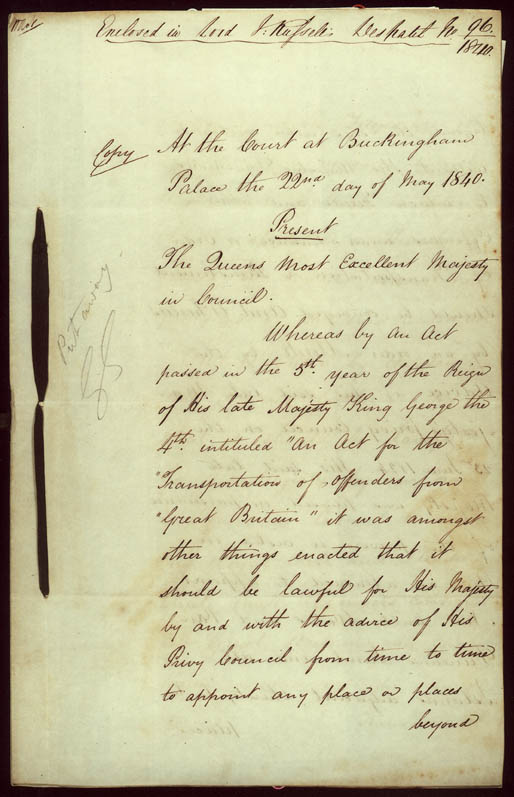 Enclosed in Lord J. Russell's Despatch No. 96.
1840.
Copy
At the Court at Buckingham
Palace the 22nd. day of May 1840.
Present
The Queens Most Excellent Majesty
in Council.
Whereas by An Act
passed in the 5th. year of the Reign
of His late Majesty King George the
4th. intituled "An Act for the
"Transportation of offenders from
"Great Britain" it was amongst
other things enacted that it
should be lawful for His Majesty
by and with the advice of His
Privy Council from time to time
to appoint any place or places
beyond
Put away